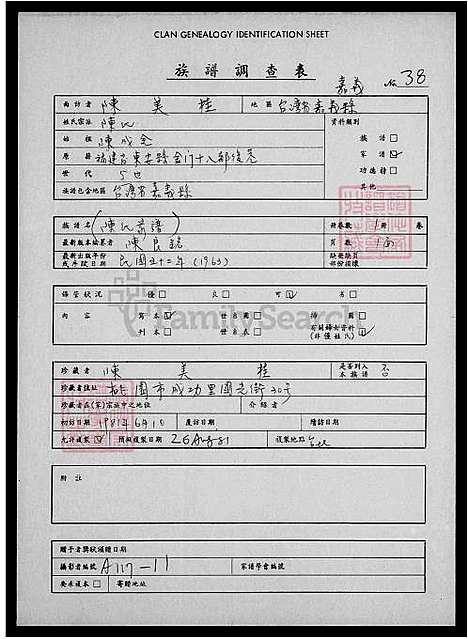 CLAN GENEALOGY IDENTIFICATION SHEET
族譜調查表
嘉義 No 38
向訪者 陳美桂 地區 台灣省嘉義縣
姓氏宗派 陳氏 資料類別
始祖 陳成全 族譜□
原籍 福建省 家譜☑
世代 5世 功德榜□
族譜包含地區 台灣省嘉義縣 其他
族譜名 (陳氏家譜) 冊卷數 1冊 卷
最新版本編纂者 陳良銘 頁數 1面
最新出版年份或序說日期 民國五十二年 (1963) 缺散缺頁部份採樣
保管狀況 優□ 良□ 可☑ 劣□
內容 寫本☑ 世系圖□ 掃圖□
刊本□ 世系表□ 有關婦女資料(非僅姓氏)☑
FamilySearch
珍藏者 陳美桂 是否列入本族譜 否
珍藏者住址 桃園市成功里國光街30号
珍藏者在(家)宗族中之地位 介紹者
初訪日期 1981年6月10 覆訪日期 續訪日期
允許複製☑ 預擬複製日期 26 Aug 81 複製地點
附註
贈予者獎狀頒贈日期
攝影者編號 A117-11 家譜學會編號
要求複本□ 寄贈地址